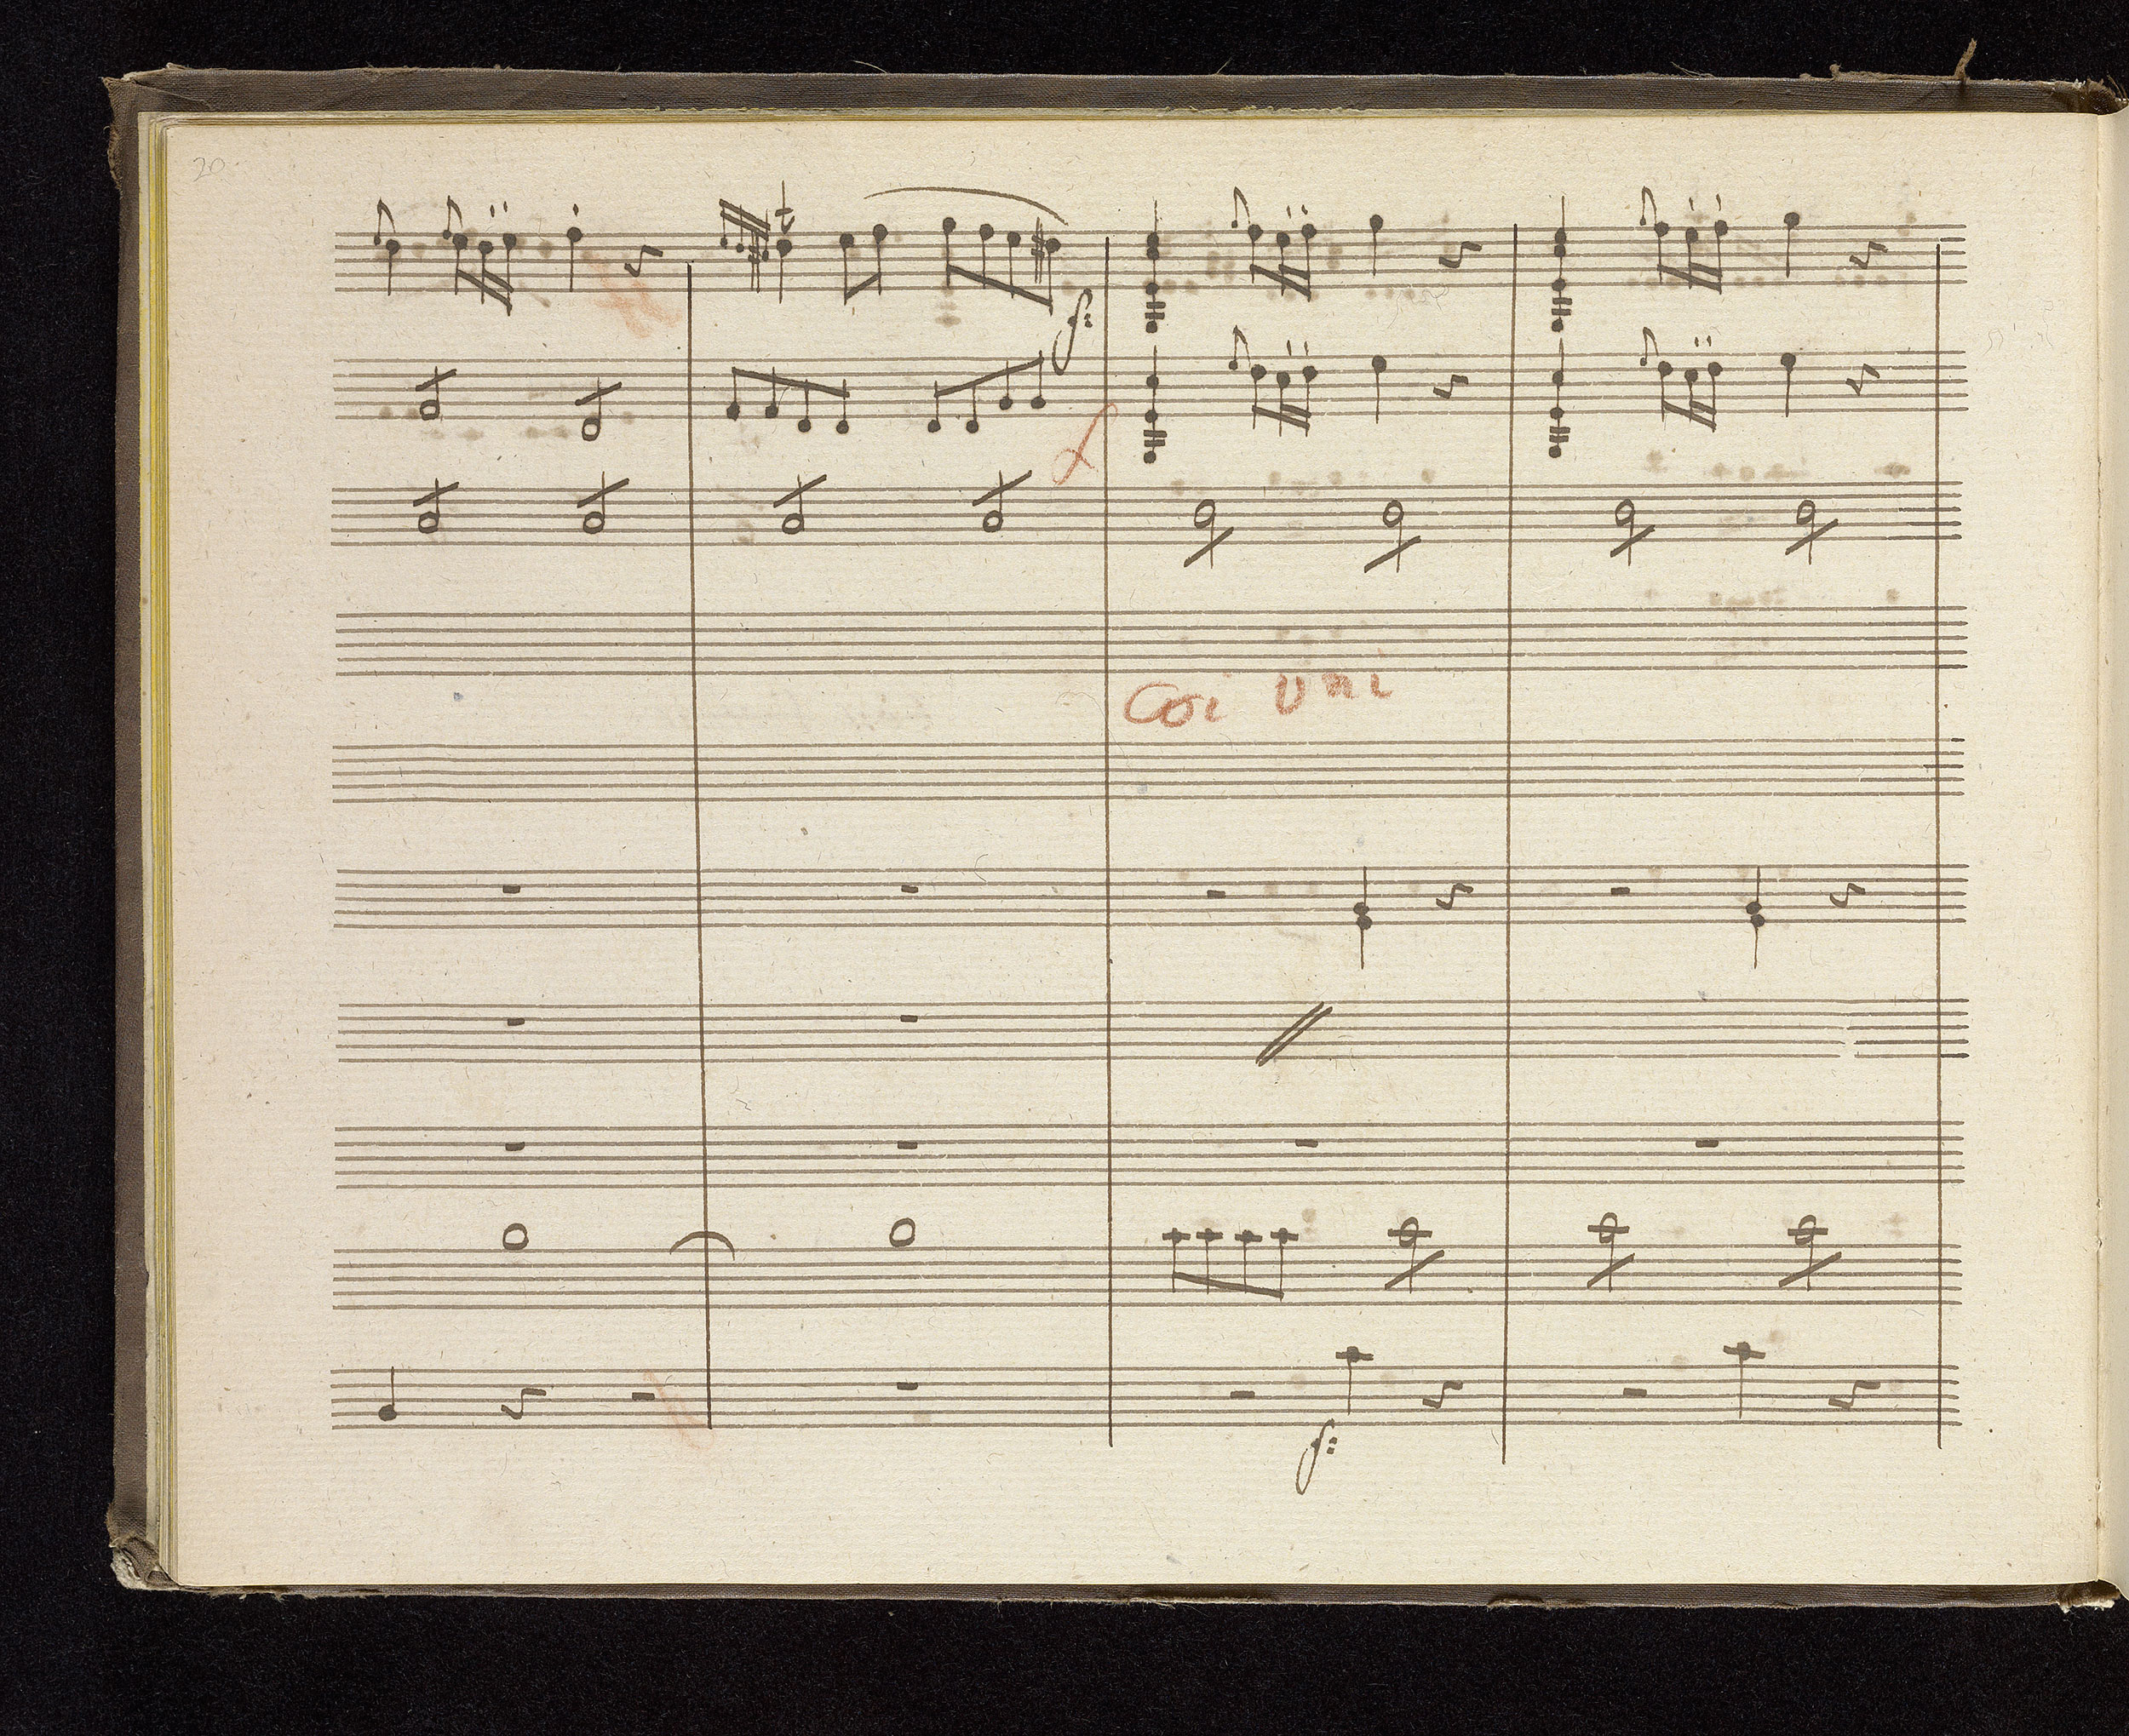 20
f:
f
Coi Vni
f: